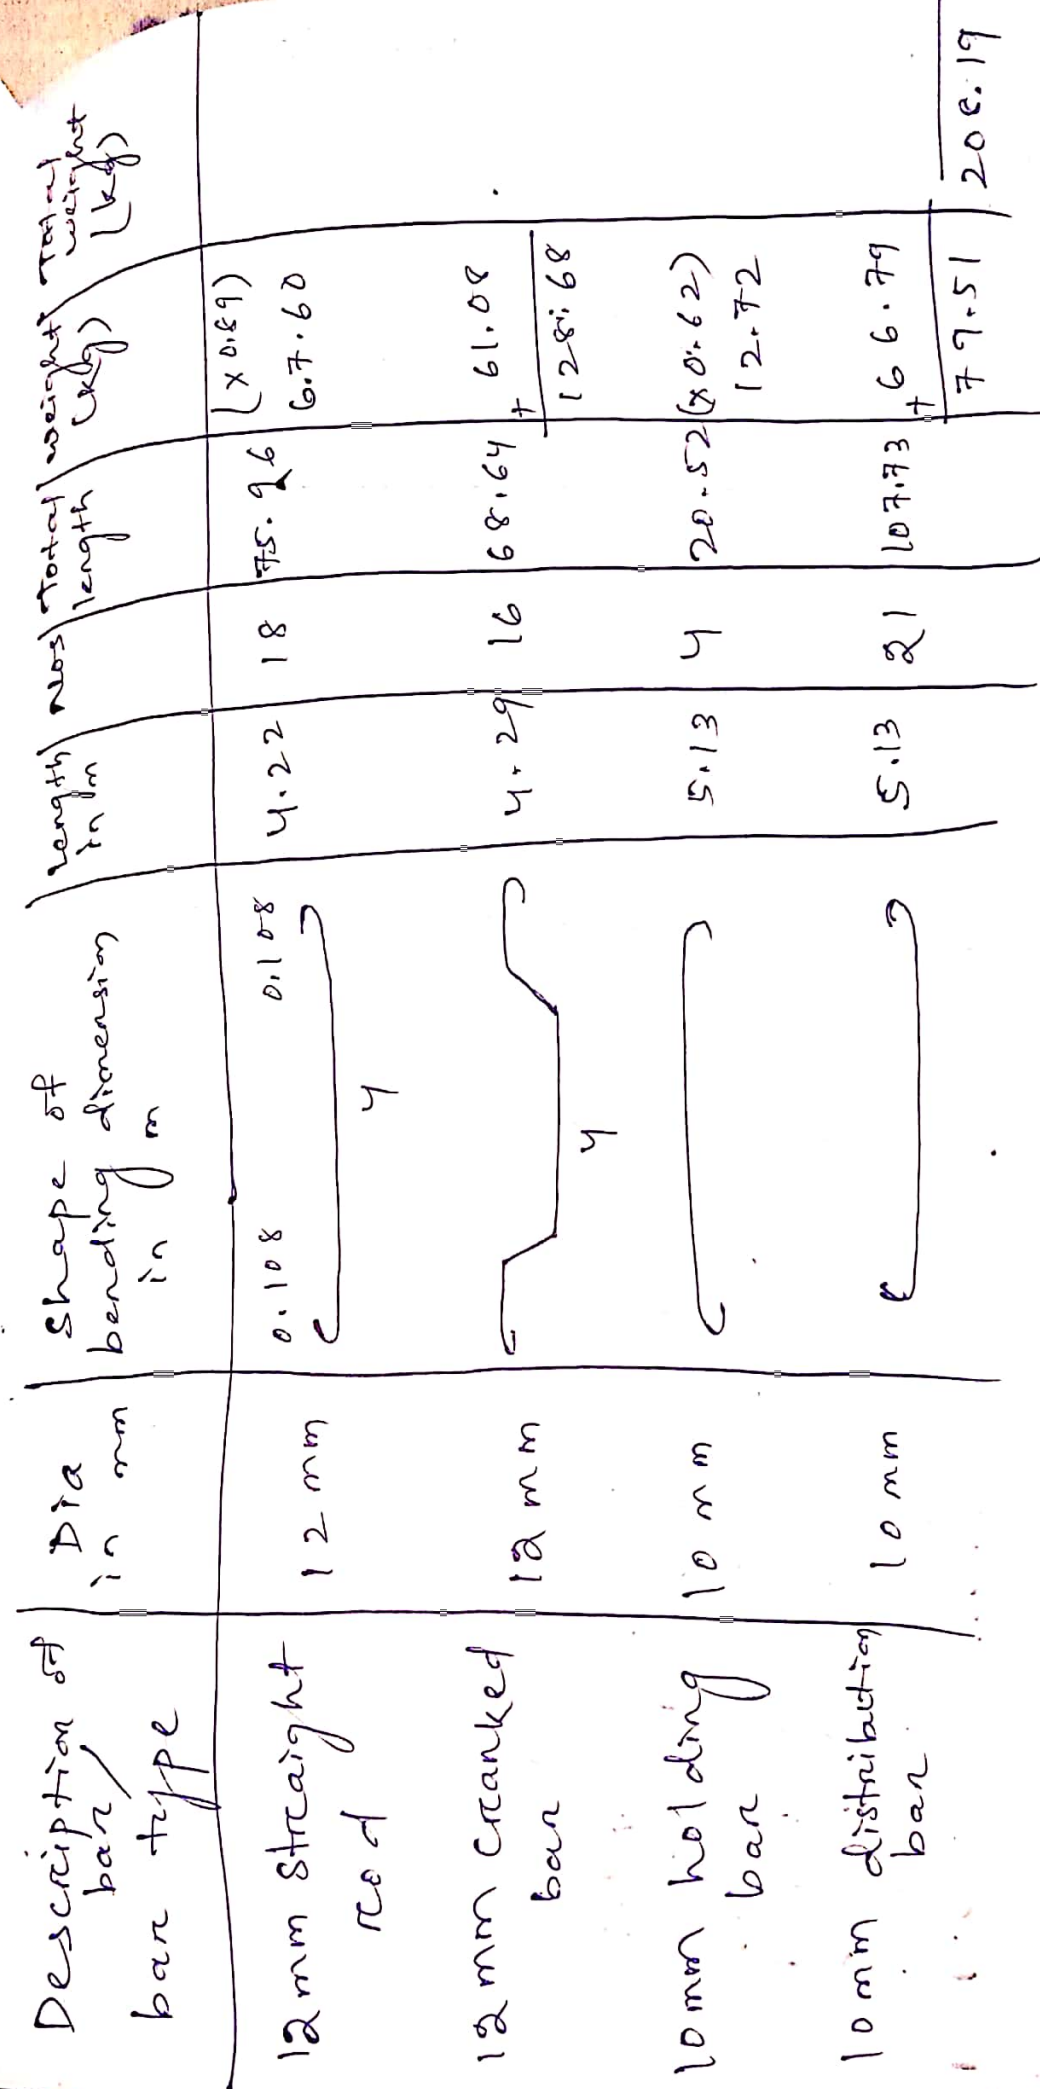 Description of bar/ bar type | Dia in mm | Shape of bending dimension in m | Length in m | Nos | Total length | weight (kg) | Total weight (kg)
12 mm Straight rod | 12 mm | 0.108 0.108 4 | 4.22 | 18 | 75.96 | (x 0.89) 67.60
12 mm Cranked bar | 12 mm | 4 | 4.29 | 16 | 68.64 | + 61.08
128.68
10 mm holding bar | 10 mm | 5.13 | 4 | 20.52 | (x 0.62) 12.72
10 mm distribution bar | 10 mm | 5.13 | 21 | 107.73 | + 66.79
79.51 | 208.19